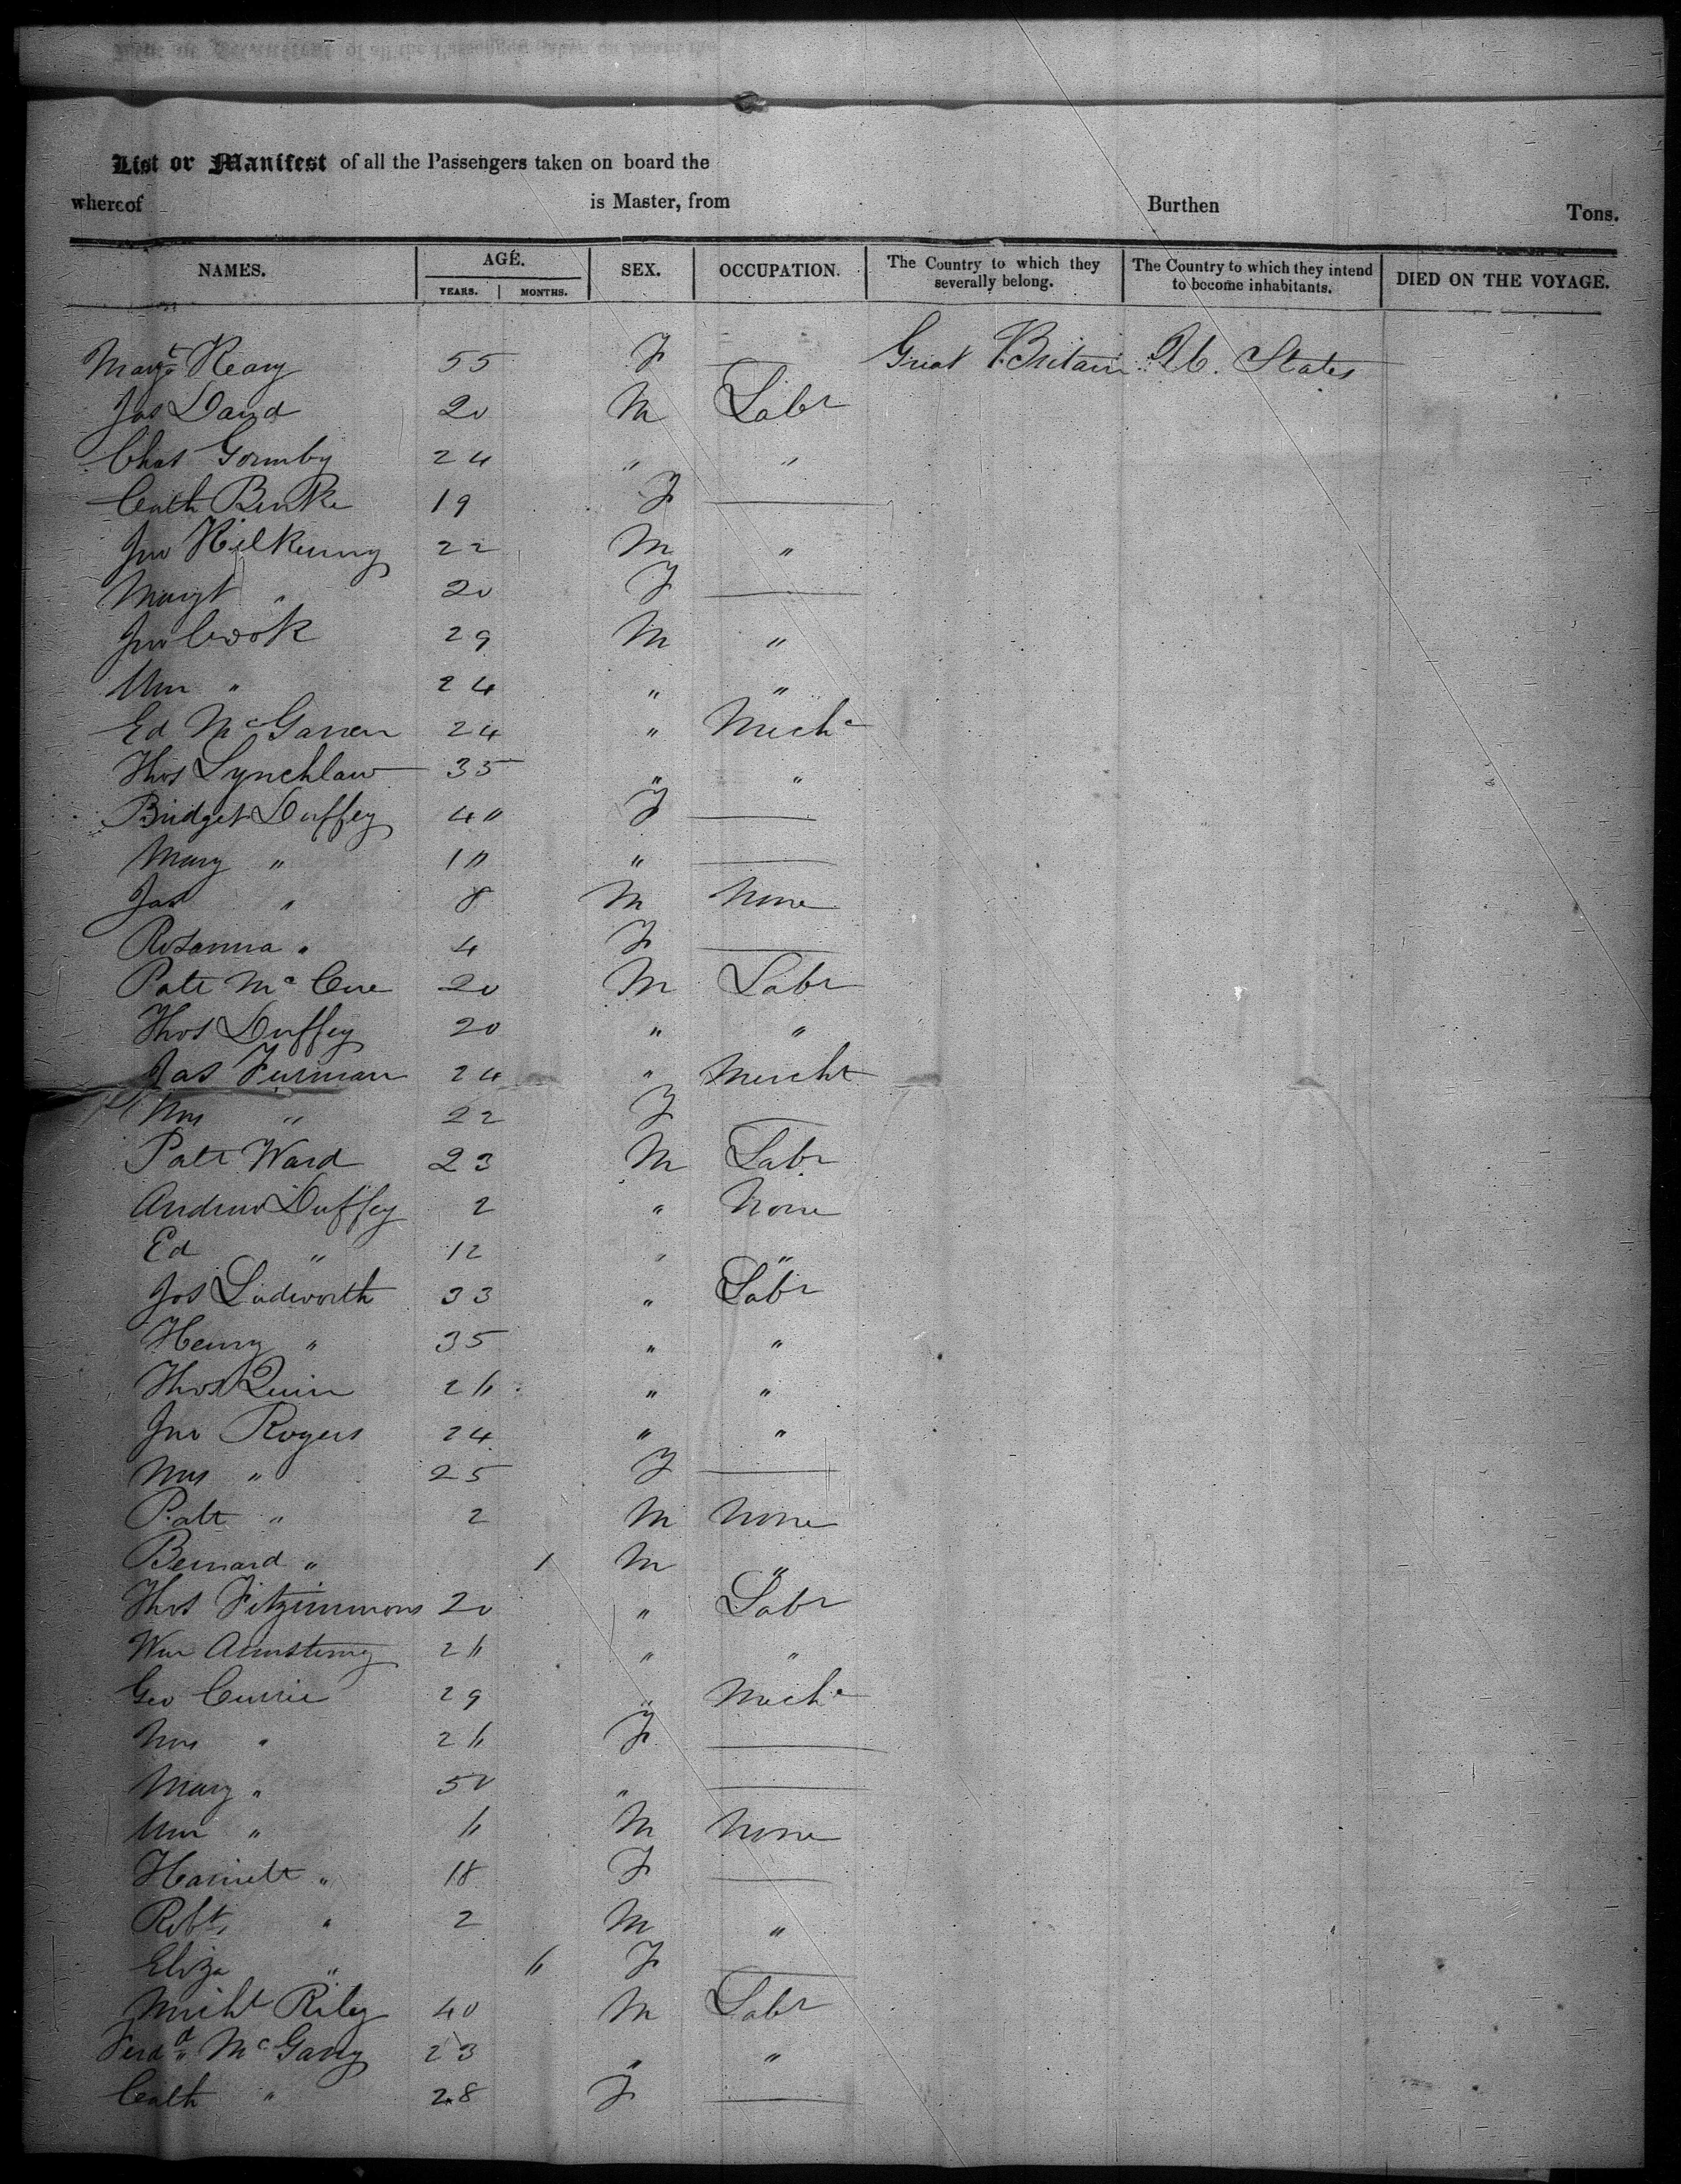 List or Manifest of all the Passengers taken on board the
whereof is Master, from Burthen Tons.
NAMES. AGE. SEX. OCCUPATION. The Country to which they severally belong. The Country to which they intend to become inhabitants. DIED ON THE VOYAGE.
YEARS. MONTHS.
Margt Keary 55 F — Great Britain U. States
Jas Daud 20 M Labr
Chas Gormby 24 " "
Cath Burke 19 F —
Jno Kilkenny 22 M "
Margt " 20 F —
Jno Cook 29 M "
Wm " 24 " "
Ed McGarren 24 " Mechc
Thos Lynchlaw 35 " "
Bridget Duffey 40 F —
Mary " 10 " —
Jas " 8 M None
Rosanna " 4 F —
Patt McCue 20 M Labr
Thos Duffey 20 " "
Jas Furman 24 " Mercht
Mrs " 22 F —
Patt Ward 23 M Labr
Andrew Duffey 2 " None
Ed " 12 " "
Jos Ludworth 33 " Labr
Henry " 35 " "
Thos Quin 26 " "
Jno Rogers 24 " "
Mrs " 25 F —
Patt " 2 M None
Bernard " 1 M "
Thos Fitzimmons 20 " Labr
Wm Armstrong 26 " "
Geo Currie 29 " Mechc
Mrs " 26 F —
Mary " 50 " —
Wm " 6 M None
Harriett " 18 F —
Robt " 2 M "
Eliza " 6 F —
Michl Riley 40 M Labr
Ferdd McGarry 23 " "
Cath " 28 F —